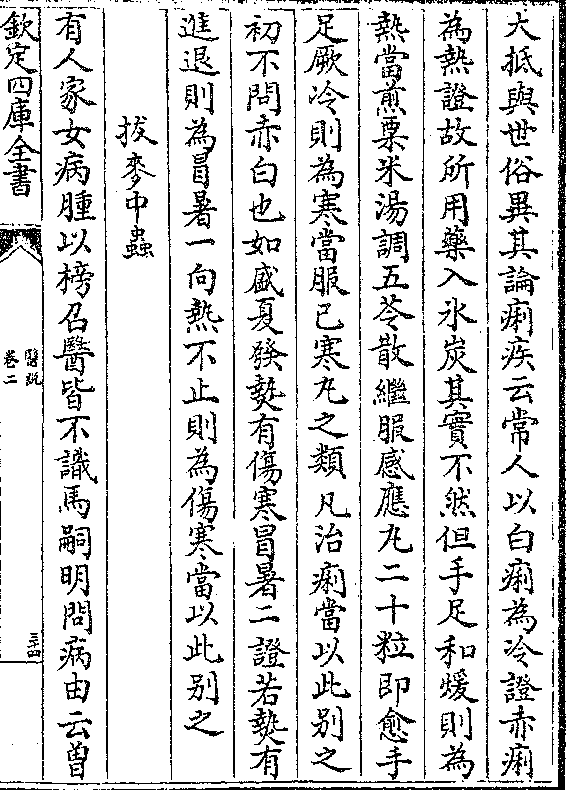 大抵與世俗異其論痢疾云常人以白痢為冷證赤痢
為熱證故所用藥入氷炭其實不然但手足和煖則為
熱當煎粟米湯調五苓散繼服感應丸二十粒即愈手
足厥冷則為寒當服已寒丸之類凡治痢當以此别之
初不問赤白也如盛夏發𤍠有傷寒冒暑二證若𤍠有
進退則為冒暑一向熱不止則為傷寒當以此别之
拔麥中蟲
有人家女病腫以榜召醫皆不識馬嗣明問病由云曽
欽定四庫全書
醫說
卷二
三十四